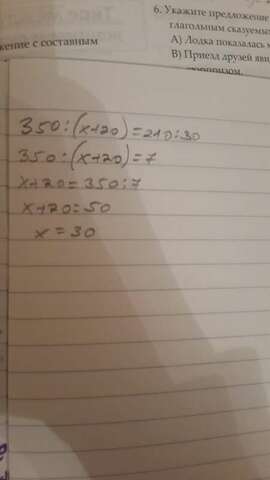 6. Укажите предложение
глагольным сказуемы
А) Лодка показалась
В) Приезд друзей яви
жение с составным
350:(x+20)=210:30
350:(x+20)=7
x+20=350:7
x+20=50
x=30